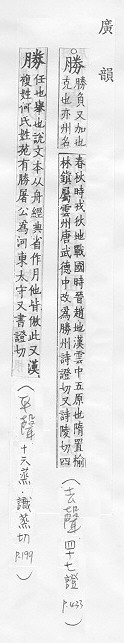 廣韻
勝 勝負又加也克也亦州名
春秋時戎狄地戰國時晉趙地漢雲中五原也隋置榆林鎮屬雲州唐武德中改為勝州詩證切又詩陵切四
(去聲 四十七證 P.433)
勝 任也舉也說文本从舟經典省作月他皆倣此又漢複姓何氏姓苑有勝屠公為河東太守又書證切
(平聲 十六蒸.識蒸切 P.199)